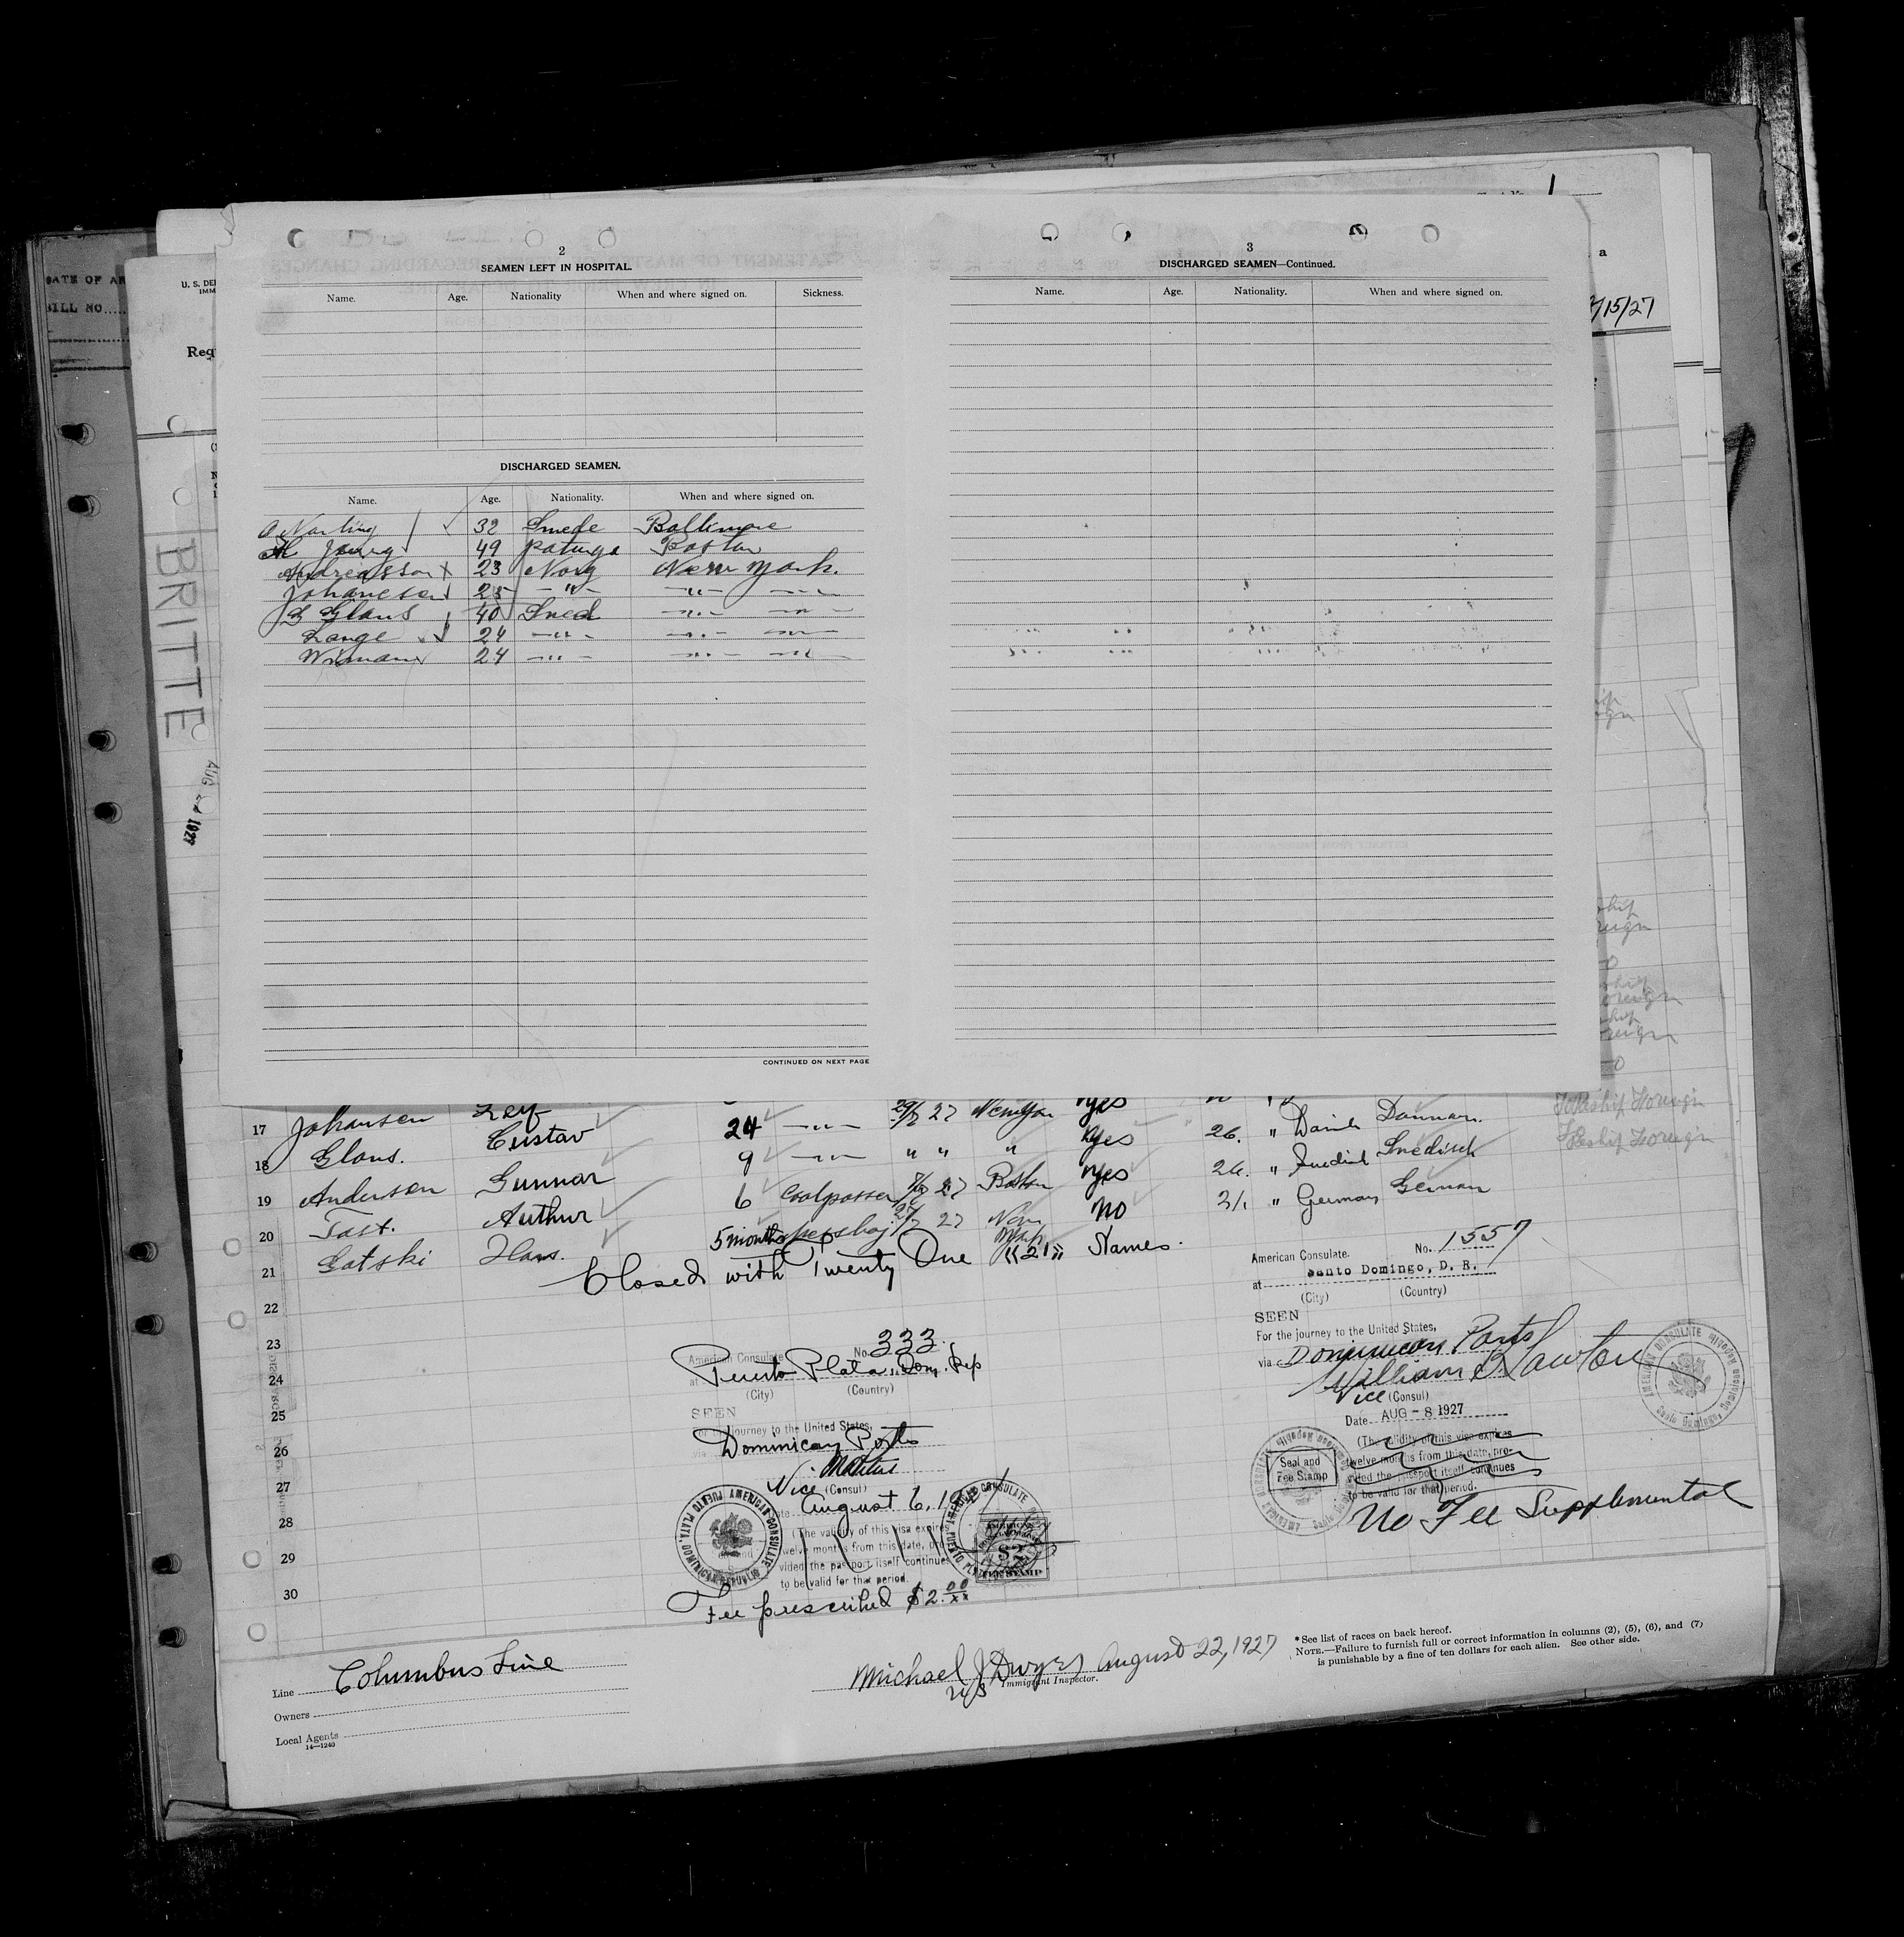 1
DATE OF AR
BILL NO.
U. S. DE
IMM
Req
a
/15/27
BRITTE
AUG 1927
2
SEAMEN LEFT IN HOSPITAL.
Name. Age. Nationality When and where signed on. Sickness.
DISCHARGED SEAMEN.
Name. Age. Nationality. When and where signed on.
O Narling 32 Swede Baltimore
49 Boston
Andreasson x 23 Norg New York.
Johanesen 25 -"- -"- -"-
G Glans 40 Swed -"- -"-
Lange 24 -"- -"- -"-
Wiman 24 -"- -"- -"-
CONTINUED ON NEXT PAGE
3
DISCHARGED SEAMEN—Continued.
Name. Age. Nationality. When and where signed on.
17 Johansen Leif
18 Glans. Gustav 24 -"- 27 New York Yes
19 Andersen Gunnar 9 -"- " " " Yes 26. " Danish
20 Tast. Arthur 6 Coalpasser 27 Boston Yes 26. " Swedish
21 Gatski Hans. 5 months 27 New No 21. " German German
Reship Foreign
Reship Foreign
Closed with Twenty One "21" Names.
22
23
24
25
26
27
28
29
30
American Consulate. No. 333.
at Puerto Plata, Dom. Rep
(City) (Country)
SEEN
For the journey to the United States,
via Dominican Ports
Vice (Consul)
Date August 6, 192
(The validity of this visa expires
twelve months from this date, pro-
vided the passport itself continues
to be valid for that period.
AMERICAN CONSULATE PUERTO PLATA, DOMINICAN REPUBLIC
$2
FEE STAMP
Fee prescribed $2.00/xx
American Consulate. No. 1557
at Santo Domingo, D. R.
(City) (Country)
SEEN
For the journey to the United States,
via Dominican Ports
William B Lawton
Vice (Consul)
Date AUG - 8 1927
(The validity of this visa expires
twelve months from this date, pro-
vided the passport itself continues
to be valid for that period.
Seal and
Fee Stamp
AMERICAN CONSULATE Santo Domingo, Dominican Republic
No Fee Supplemental
Line Columbus Line
Owners
Local Agents
14—1240
Michael J Dwyer August 22, 1927
US Immigrant Inspector.
*See list of races on back hereof.
NOTE.—Failure to furnish full or correct information in columns (2), (5), (6), and (7)
is punishable by a fine of ten dollars for each alien. See other side.